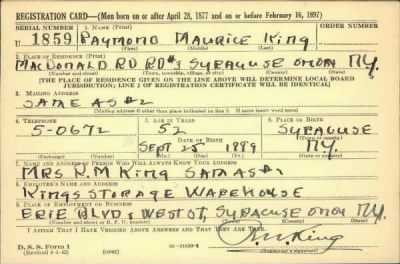 REGISTRATION CARD—(Men born on or after April 28, 1877 and on or before February 16, 1897)
SERIAL NUMBER 1. NAME (Print) ORDER NUMBER
U 1859 RAYMOND MAURICE KING
(First) (Middle) (Last)
2. PLACE OF RESIDENCE (Print)
MACDONALD RD RD#3 SYRACUSE ONON N.Y.
(Number and street) (Town, township, village, or city) (County) (State)
[THE PLACE OF RESIDENCE GIVEN ON THE LINE ABOVE WILL DETERMINE LOCAL BOARD
JURISDICTION; LINE 2 OF REGISTRATION CERTIFICATE WILL BE IDENTICAL]
3. MAILING ADDRESS
SAME AS #2
[Mailing address if other than place indicated on line 2. If same insert word same]
4. TELEPHONE 5. AGE IN YEARS 6. PLACE OF BIRTH
5-0672 52 SYRACUSE
DATE OF BIRTH (Town or county)
SEPT 25 1889 N.Y.
(Exchange) (Number) (Mo.) (Day) (Yr.) (State or country)
7. NAME AND ADDRESS OF PERSON WHO WILL ALWAYS KNOW YOUR ADDRESS
MRS R.M KING SAM AS #2
8. EMPLOYER'S NAME AND ADDRESS
KINGS STORAGE WAREHOUSE
9. PLACE OF EMPLOYMENT OR BUSINESS
ERIE BLVD & WEST ST, SYRACUSE ONON N.Y.
(Number and street or R. F. D. number) (Town) (County) (State)
I AFFIRM THAT I HAVE VERIFIED ABOVE ANSWERS AND THAT THEY ARE TRUE.
D. S. S. Form 1
(Revised 4-1-42) (over) R.M. King